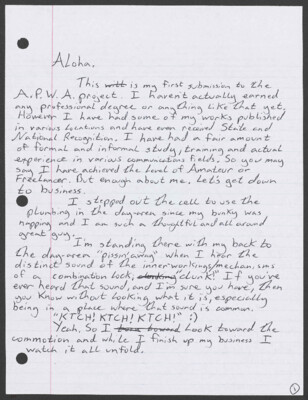 Aloha,
This will is my first submission to the
A.P.W.A. project. I haven't actually earned
any professional degree or anything like that yet,
However I have had some of my works published
in various locations and have even received State and
National Recognition. I have had a fair amount
of formal and informal study, training and actual
experience in various communications fields. So you may
say I have achieved the level of Amateur or
Freelancer. But enough about me. Let's get down
to business.
I stepped out the cell to use the
plumbing in the day-area since my bunky was
napping and I am such a thoughtful and all around
great guy.
I'm standing there with my back to
the day-area "pissin' away" when I hear the
distinct sound of the inner workings/mechanisms
of a combination lock, "clunk!" If you've
ever heard that sound, and I'm sure you have, then
you know without looking what it is, especially
being in a place where that sound is common.
"KTCH! KTCH! KTCH!" :)
Yeah. So I look toward the
commotion and while I finish up my business I
watch it all unfold.
1